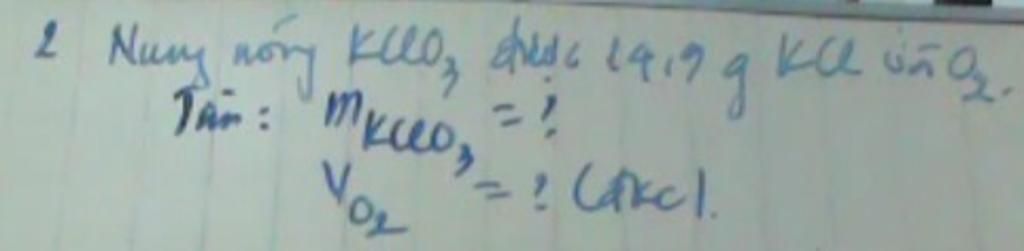 2 Nung nóng KClO₃ được 14,9 g KCl và O₂.
Tìm: m KClO₃ = ?
V O₂ = ? (đkc).